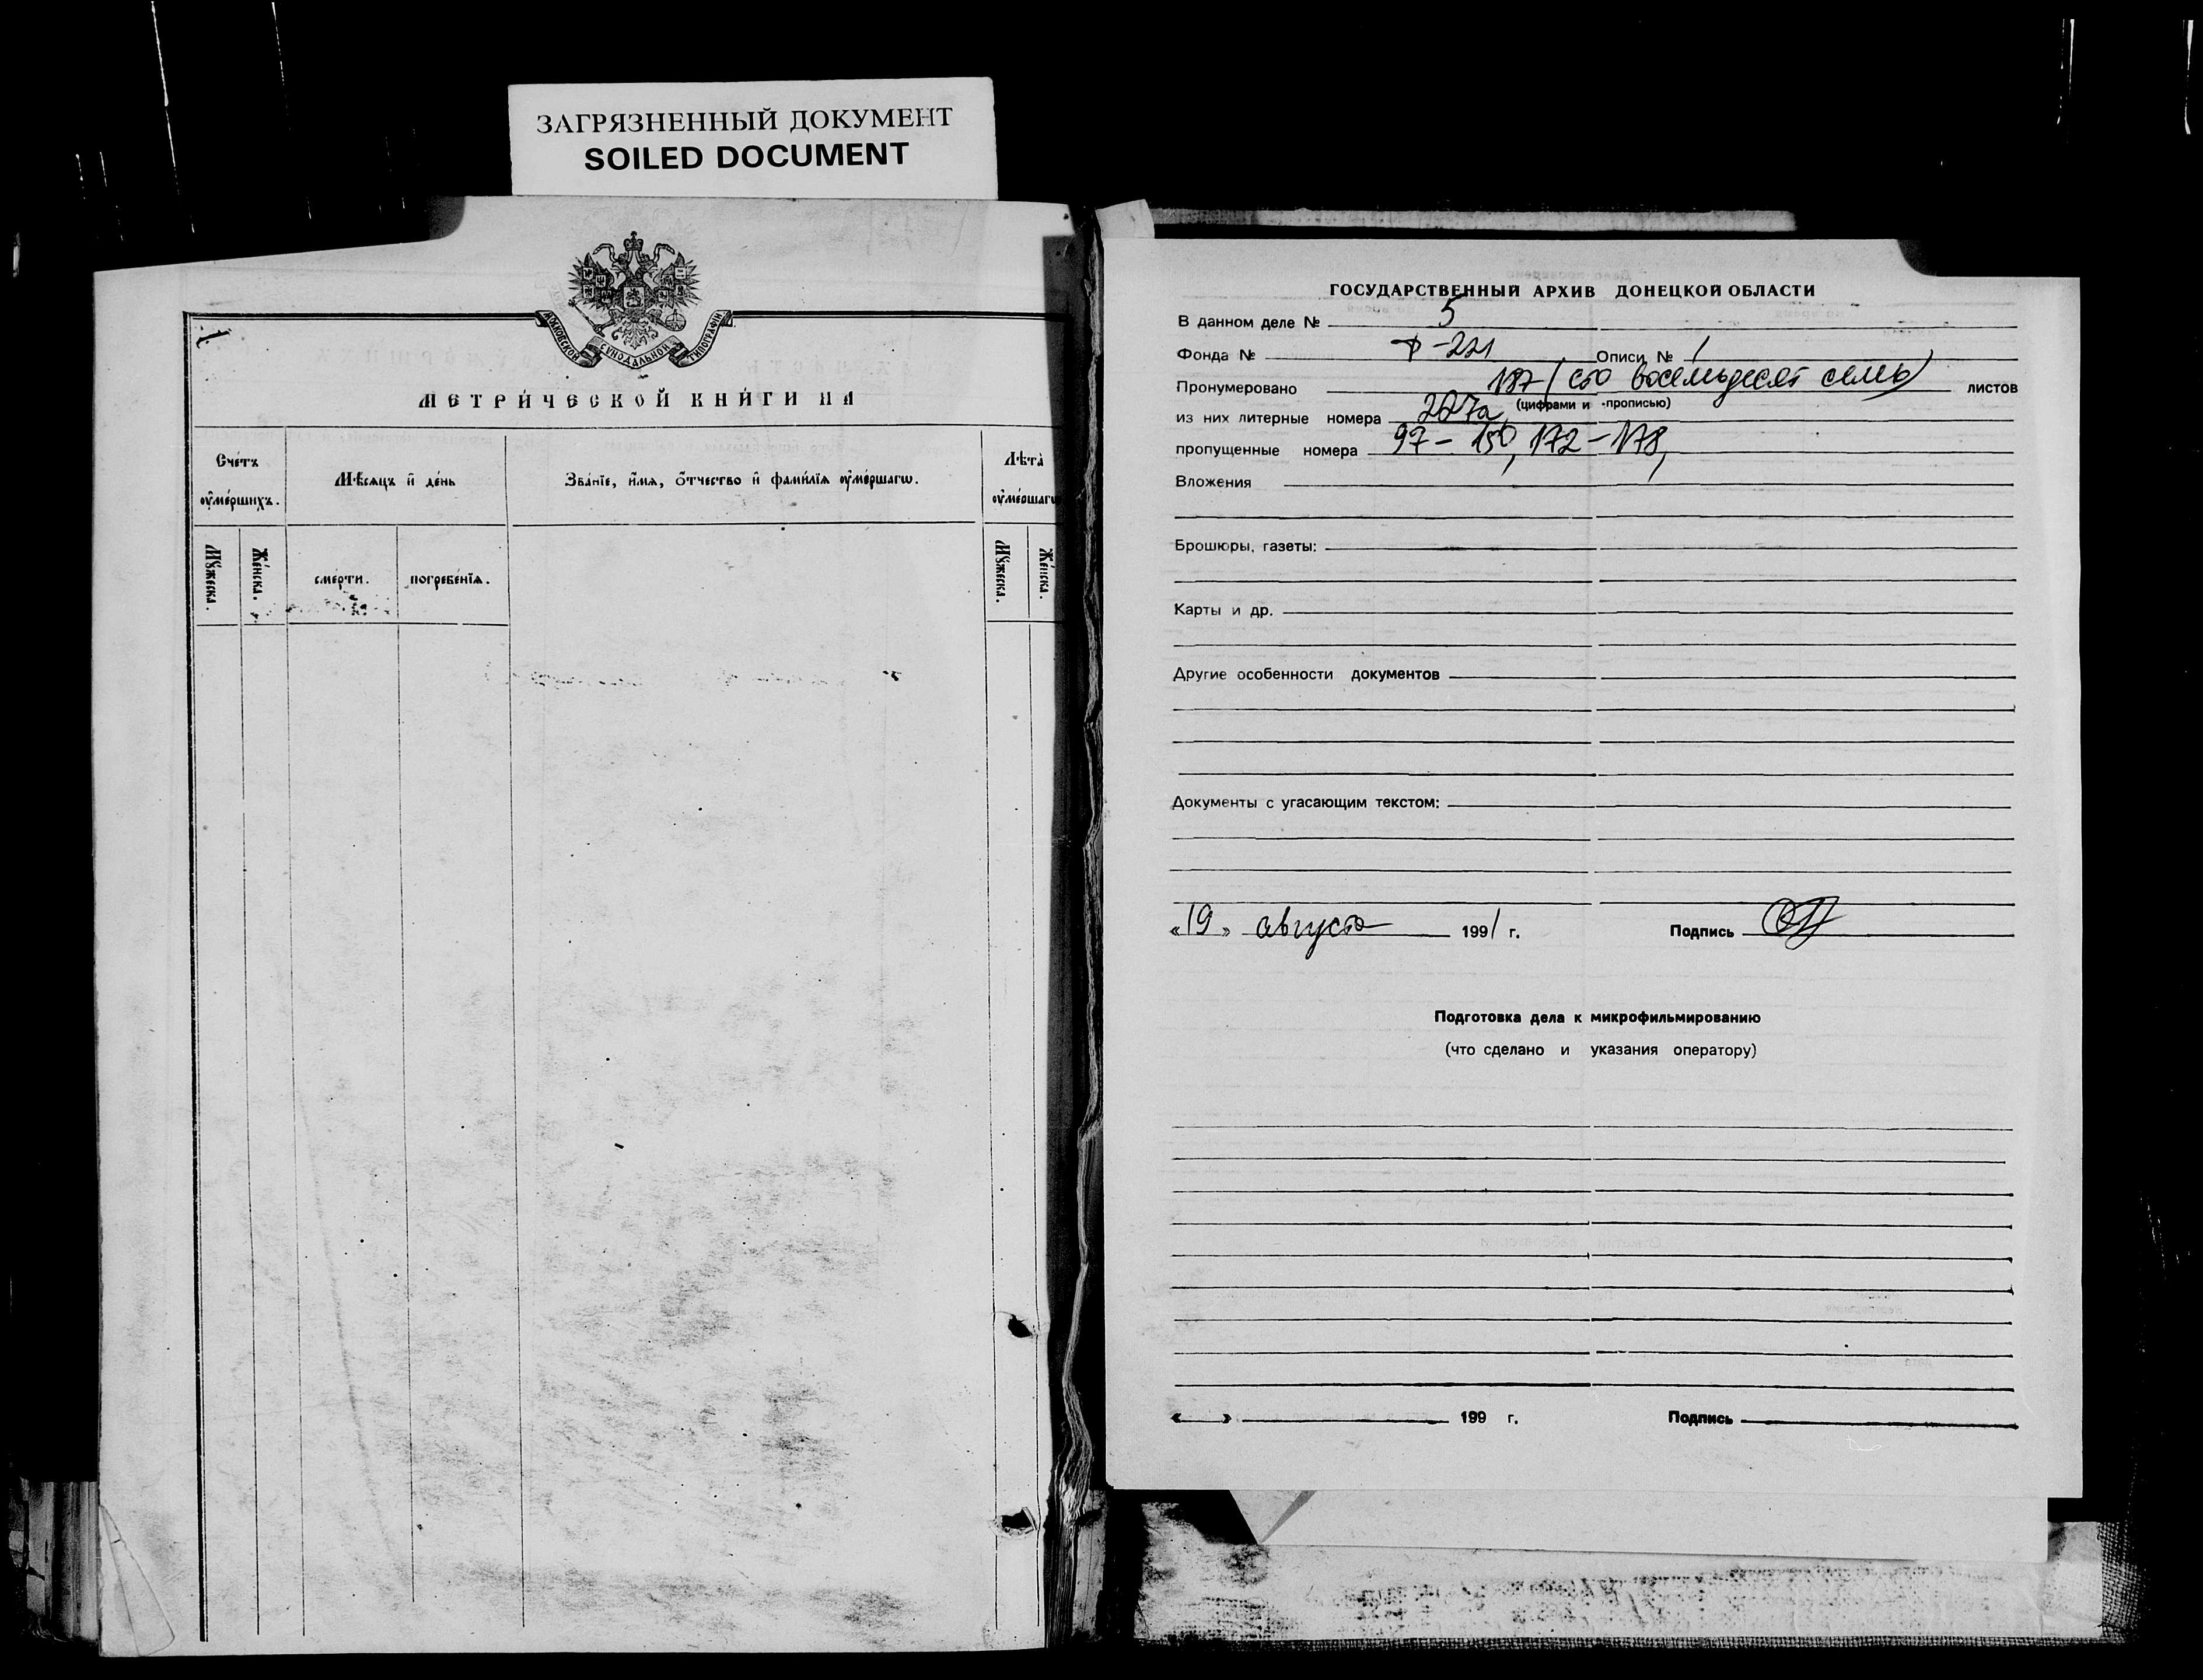 ЗАГРЯЗНЕННЫЙ ДОКУМЕНТ
SOILED DOCUMENT
МОСКОВСКОЙ СѴНОДАЛЬНОЙ ТИПОГРАФІИ
МЕТРИ́ЧЕСКОЙ КНИ́ГИ НА
Сче́тъ ᲂу҆ме́ршихъ.
Мѣ́сяцъ и҆ де́нь
Зва́нїе, и҆́мѧ, ѻ҆́тчество и҆ фами́лїѧ ᲂу҆ме́ршагѡ.
Лѣта̀ ᲂу҆ме́ршагѡ
Мꙋ́жеска.
Же́нска.
сме́рти.
погребе́нїѧ.
Мꙋ́жеска.
Же́нска.
ГОСУДАРСТВЕННЫЙ АРХИВ ДОНЕЦКОЙ ОБЛАСТИ
В данном деле № 5
Фонда № Ф-221 Описи № 1
Пронумеровано 187 (сто восемьдесят семь) листов
(цифрами и -прописью)
из них литерные номера 227а,
пропущенные номера 97-150, 172-178,
Вложения
Брошюры, газеты:
Карты и др.
Другие особенности документов
Документы с угасающим текстом:
«19» августа 1991 г. Подпись
Подготовка дела к микрофильмированию
(что сделано и указания оператору)
« » 199 г. Подпись